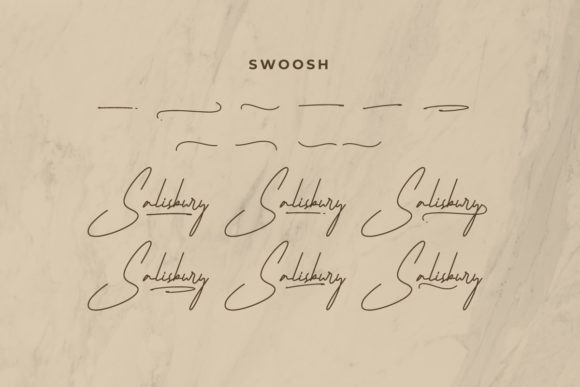 SWOOSH
Salisbury Salisbury Salisbury
Salisbury Salisbury Salisbury